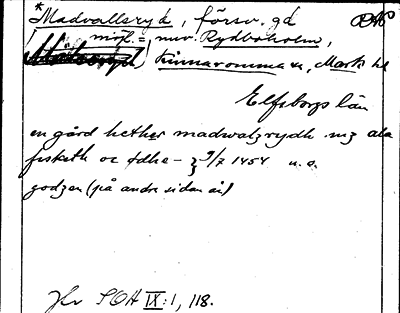 *Madvallsryd, försv. gd
möjl. = nuv. Rydboholm,
Kinnarumma sn, Marks hd
Elfsborgs län
en gård hether madwalzrydh mz ala
fisketh oc ødhe - 9/7 1454 u.o.
godzen (på andre sidan ån)
Jfr SOH IX:1, 118.